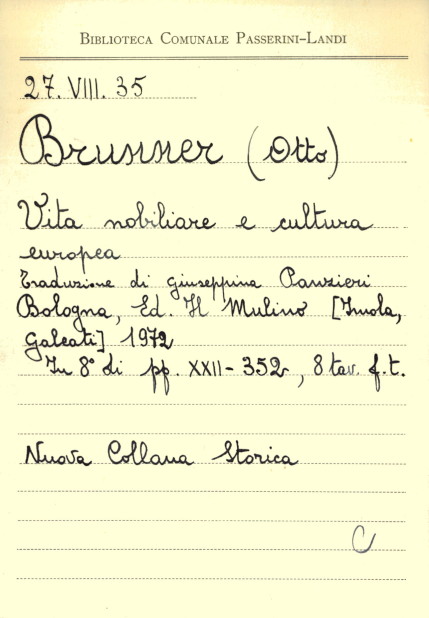 BIBLIOTECA COMUNALE PASSERINI-LANDI
27. VIII. 35
Brunner (Otto)
Vita nobiliare e cultura
europea
Traduzione di Giuseppina Panzieri
Bologna, Ed. Il Mulino [Imola,
Galeati] 1972
In 8° di pp. XXII-352, 8 tav. f.t.
Nuova Collana Storica
C